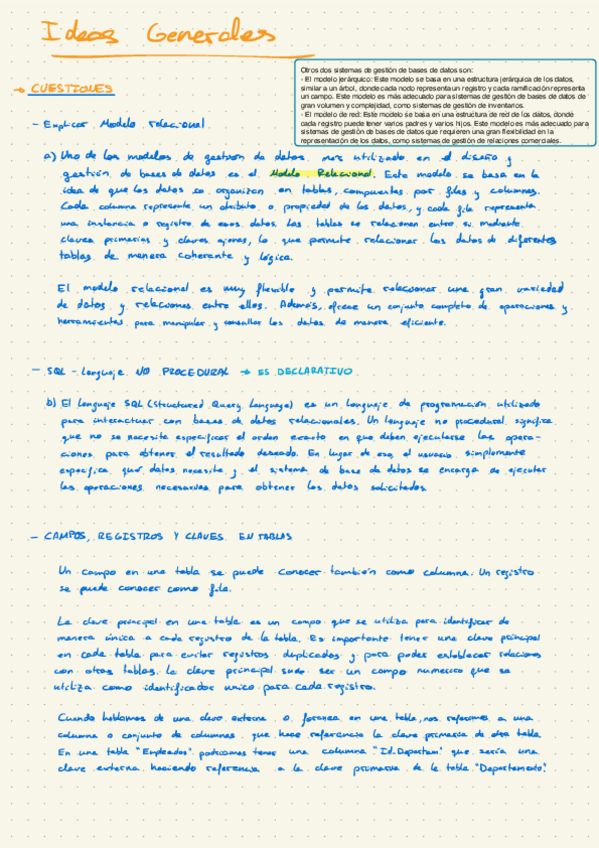 Ideas Generales
Otros dos sistemas de gestión de bases de datos son:
- El modelo jerárquico: Este modelo se basa en una estructura jerárquica de los datos,
similar a un árbol, donde cada nodo representa un registro y cada ramificación representa
un campo. Este modelo es más adecuado para sistemas de gestión de bases de datos de
gran volumen y complejidad, como sistemas de gestión de inventarios.
- El modelo de red: Este modelo se basa en una estructura de red de los datos, donde
cada registro puede tener varios padres y varios hijos. Este modelo es más adecuado para
sistemas de gestión de bases de datos que requieren una gran flexibilidad en la
representación de los datos, como sistemas de gestión de relaciones comerciales.
→ CUESTIONES
- Explicar Modelo relacional
a) Uno de los modelos de gestión de datos más utilizado en el diseño y
gestión de bases de datos es el Modelo Relacional. Este modelo se basa en la
idea de que los datos se organizan en tablas, compuestas por filas y columnas.
Cada columna representa un atributo o propiedad de los datos, y cada fila representa
una instancia o registro de esos datos. Las tablas se relacionan entre si mediante
claves primarias y claves ajenas, lo que permite relacionar los datos de diferentes
tablas de manera coherente y lógica.
El modelo relacional es muy flexible y permite relacionar una gran variedad
de datos y relaciones entre ellos. Además, ofrece un conjunto completo de operaciones y
herramientas para manipular y consultar los datos de manera eficiente.
- SQL - Lenguaje NO PROCEDURAL → ES DECLARATIVO
b) El lenguaje SQL (Structured Query Language) es un lenguaje de programación utilizado
para interactuar con bases de datos relacionales. Un lenguaje no procedural significa
que no se necesita especificar el orden exacto en que deben ejecutarse las opera-
ciones para obtener el resultado deseado. En lugar de eso, el usuario simplemente
especifica que datos necesita y el sistema de base de datos se encarga de ejecutar
las operaciones necesarias para obtener los datos solicitados
- CAMPOS, REGISTROS Y CLAVES EN TABLAS
Un campo en una tabla se puede conocer también como columna. Un registro
se puede conocer como fila.
La clave principal en una tabla es un campo que se utiliza para identificar de
manera única a cada registro de la tabla. Es importante tener una clave principal
en cada tabla para evitar registros duplicados y para poder establecer relaciones
con otras tablas. La clave principal suele ser un campo numerico que se
utiliza como identificador unico para cada registro.
Cuando hablamos de una clave externa o foranea en una tabla, nos referimos a una
columna o conjunto de columnas que hace referencia la clave primaria de otra tabla
En una tabla "Empleados" podríamos tener una columna "Id.Departam." que sería una
clave externa haciendo referencia a la clave primaria de la tabla "Departamento".